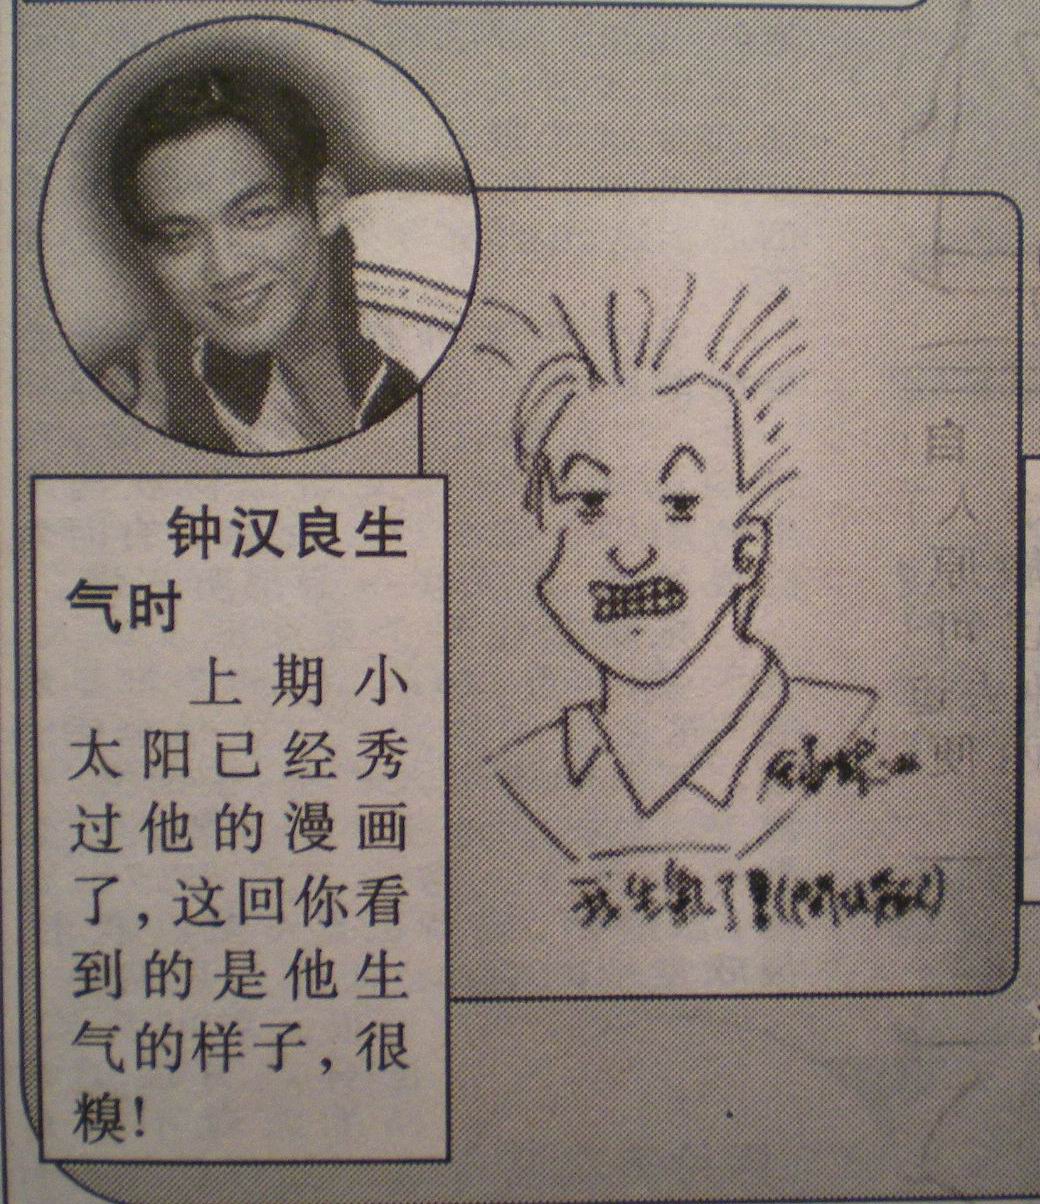 钟汉良生
气时
上期小
太阳已经秀
过他的漫画
了,这回你看
到的是他生
气的样子,很
糗!
我生氣了!